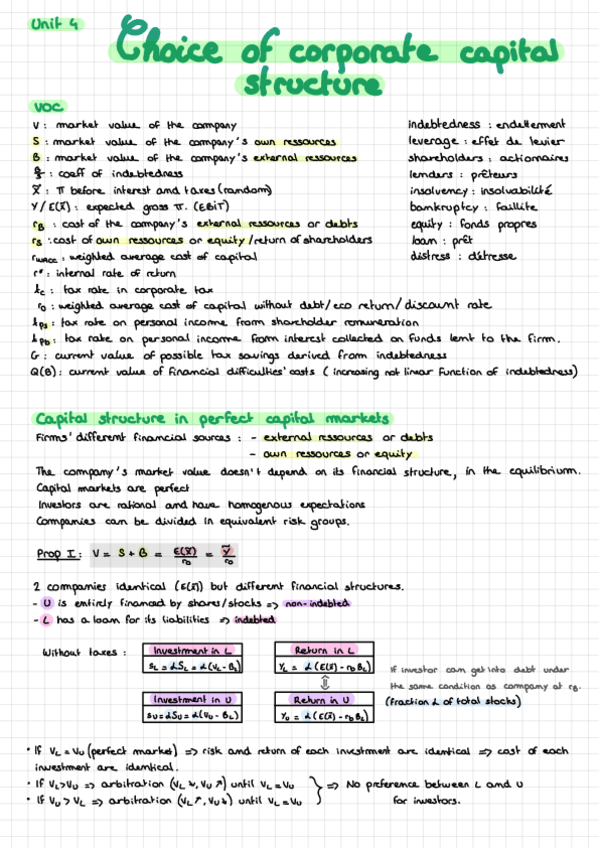 Unit 4
Choice of corporate capital
structure
VOC
V : market value of the company
S : market value of the company's own ressources
B : market value of the company's external ressources
B/S : coeff of indebtedness
X̃ : π before interest and taxes (random)
Y/E(X̃) : expected gross π. (EBiT)
rB : cost of the company's external ressources or debts
rS : cost of own ressources or equity/return of shareholders
rWACC : weighted average cost of capital
r* : internal rate of return
tc : tax rate in corporate tax
r0 : weighted average cost of capital without debt/eco return/discount rate
tps : tax rate on personal income from shareholder remuneration
tpb : tax rate on personal income from interest collected on funds lent to the firm.
G : current value of possible tax savings derived from indebtedness
Q(B) : current value of financial difficulties' costs (increasing not linear function of indebtedness)
indebtedness : endettement
leverage : effet de levier
shareholders : actionnaires
lenders : prêteurs
insolvency : insolvabilité
bankruptcy : faillite
equity : fonds propres
loan : prêt
distress : détresse
Capital structure in perfect capital markets
Firms' different financial sources : - external ressources or debts
- own ressources or equity
The company's market value doesn't depend on its financial structure, in the equilibrium.
Capital markets are perfect
Investors are rational and have homogenous expectations
Companies can be divided in equivalent risk groups.
Prop I : V = S + B = E(X̃)/r0 = Ỹ/r0
2 companies identical (E(x̃)) but different financial structures.
- U is entirely financed by shares/stocks => non-indebted
- L has a loan for its liabilities => indebted
Without taxes :
Investment in L
sL = αSL = α(VL - BL)
Return in L
YL = α(E(x̃) - rbBL)
⇕
Investment in U
sU = αSU = α(VU - BL)
Return in U
YU = α(E(x̃) - rbBL)
If investor can get into debt under
the same condition as company at rB.
(fraction α of total stocks)
• If VL = VU (perfect market) => risk and return of each investment are identical => cost of each
investment are identical.
• If VL > VU => arbitration (VL ↘, VU ↗) until VL = VU
• If VU > VL => arbitration (VL ↗, VU ↘) until VL = VU
} => No preference between L and U
for investors.